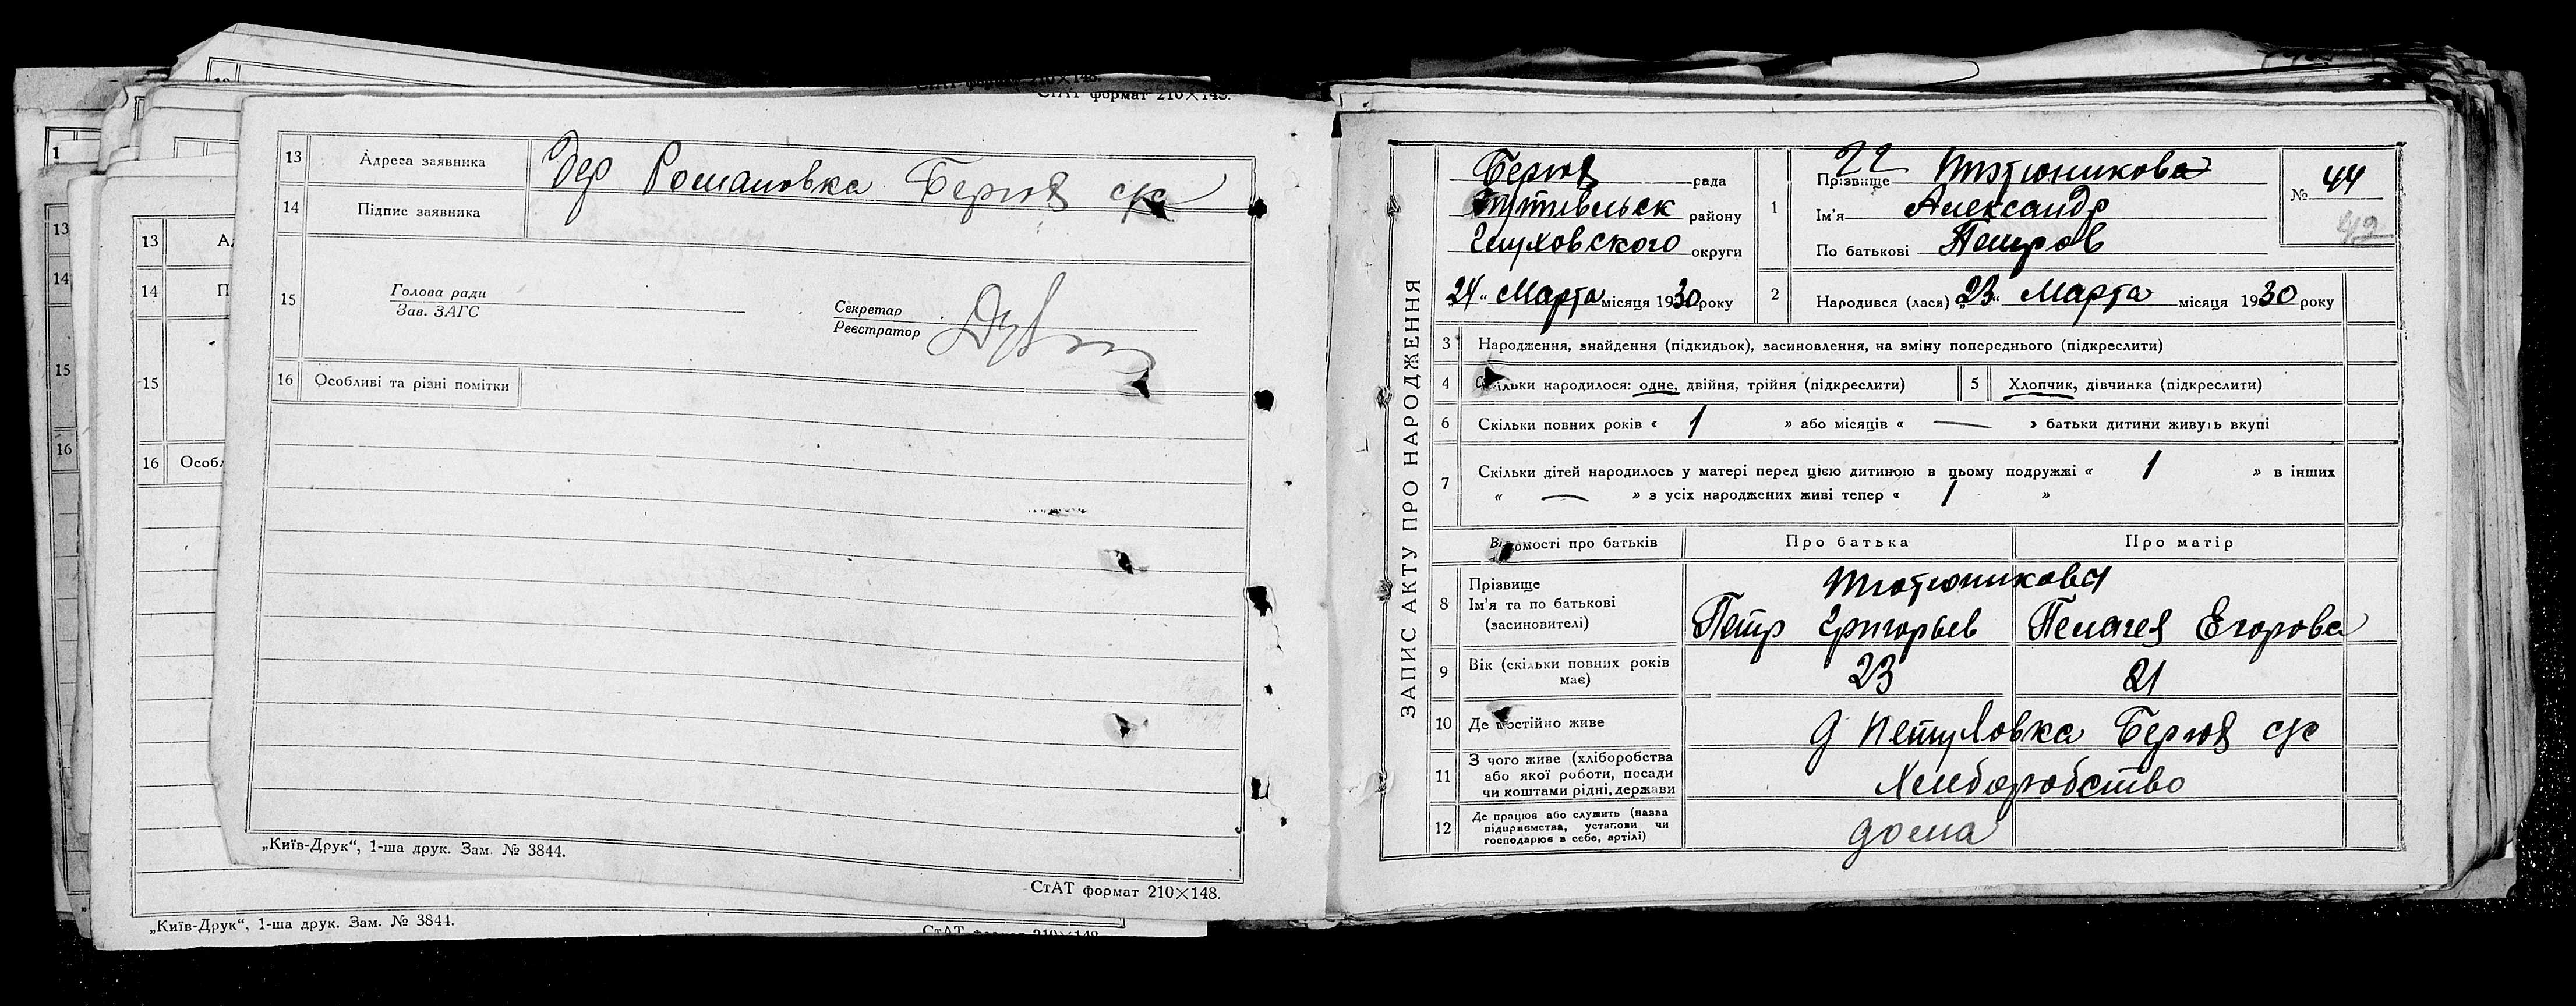 СтАТ формат 210×148.
13 Адреса заявника Дер Романовка Берюх с/с
14 Підпис заявника
15 Голова ради
Зав. ЗАГС
Секретар
Реєстратор
16 Особливі та різні помітки
„Київ-Друк“, 1-ша друк. Зам. № 3844.
СтАТ формат 210×148.
1
13
14
15
16
13
14
15
16 Особл
„Київ-Друк“, 1-ша друк. Зам. № 3844.
ЗАПИС АКТУ ПРО НАРОДЖЕННЯ
Берюх рада
Путивльск району
Глуховского округи
24 „ Марта місяця 1930 року
22
1 Прізвище
Ім'я Александр
По батькові Петров
№ 44
42
2 Народився (лася) „23“ Марта місяця 1930 року
3 Народження, знайдення (підкидьок), засиновлення, на зміну попереднього (підкреслити)
4 Скільки народилося: одне, двійня, трійня (підкреслити)
5 Хлопчик, дівчинка (підкреслити)
6 Скільки повних років « 1 » або місяців « — » батьки дитини живуть вкупі
7 Скільки дітей народилось у матері перед цією дитиною в цьому подружжі « 1 » в інших
« — » з усіх народжених живі тепер « 1 »
Відомості про батьків Про батька Про матір
8 Прізвище
Ім'я та по батькові
(засиновителі) Петр Григорьев Пелагея Егорова
9 Вік (скільки повних років
має) 23 21
10 Де постійно живе д Берюх с/с
11 З чого живе (хліборобства
або якої роботи, посади
чи коштами рідні, держави Хлеборобство
12 Де працює або служить (назва
підприємства, установи чи
господарює в себе, артілі) дома